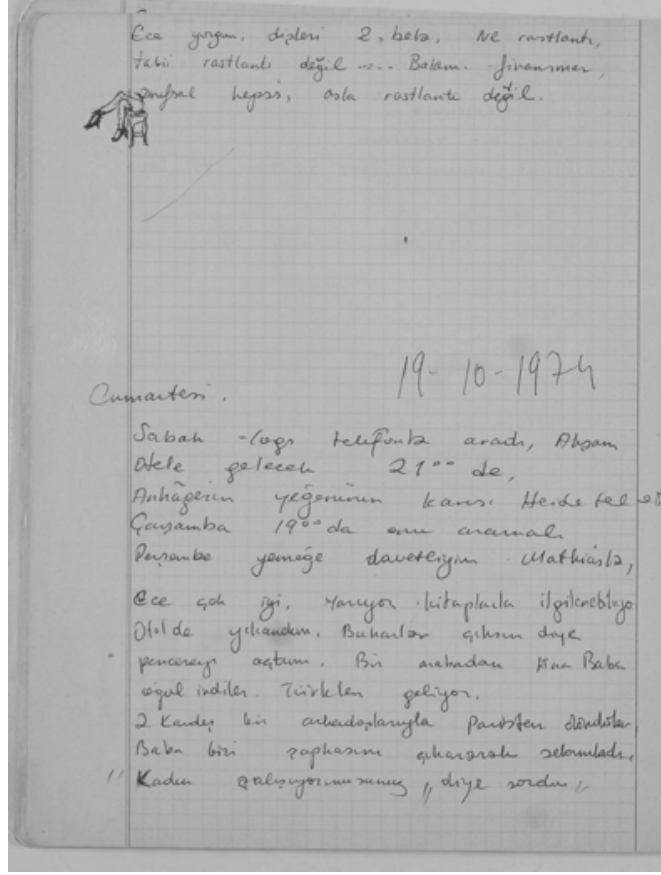 Ece yorgun, dişleri 2. bela. Ne rastlantı,
tabii rastlantı değil .... Bakam. finansman,
hepsi, asla rastlantı değil.
19-10-1974
Cumartesi.
Sabah telefonla aradı, Akşam
Otele gelecek 21⁰⁰ de,
yeğeninin karısı Heide tel et
Çarşamba 19⁰⁰ da onu aramalı
Perşembe yemeğe davetliyim Mathiasla,
Ece çok iyi, yazıyor kitaplarla ilgilenebiliyo
Otelde yıkandım. Buharlar çıksın diye
pencereyi açtım. Bir arabadan Ana Baba
oğul indiler. Türkler geliyor.
2 Kardeş bir arkadaşlarıyla Paristen döndüler,
Baba biri şapkasını çıkararak selamladı,
" Kadın çalışıyormusunuz " diye sordu "